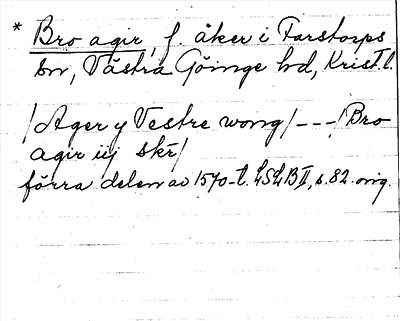 * Bro agir, f. åker i Farstorps
sn, Västra Göinge hd, Krist. l.
/Ager y Vestre wong/ - - - /Bro
agir iij skr/
förra delen av 1570-t. LSLB II, s. 82. orig.